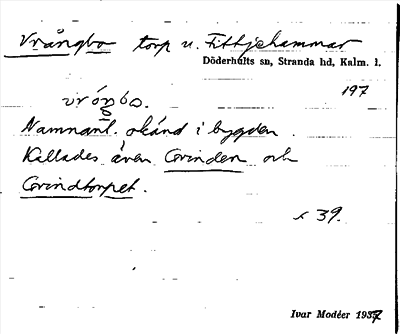 Vrångbo torp u. Fittjehammar
Döderhults sn, Stranda hd, Kalm. l.
197
vróŋbo.
Namnanl. okänd i bygden.
Kallades även Grinden och
Grindtorpet.
s 39.
Ivar Modéer 1937